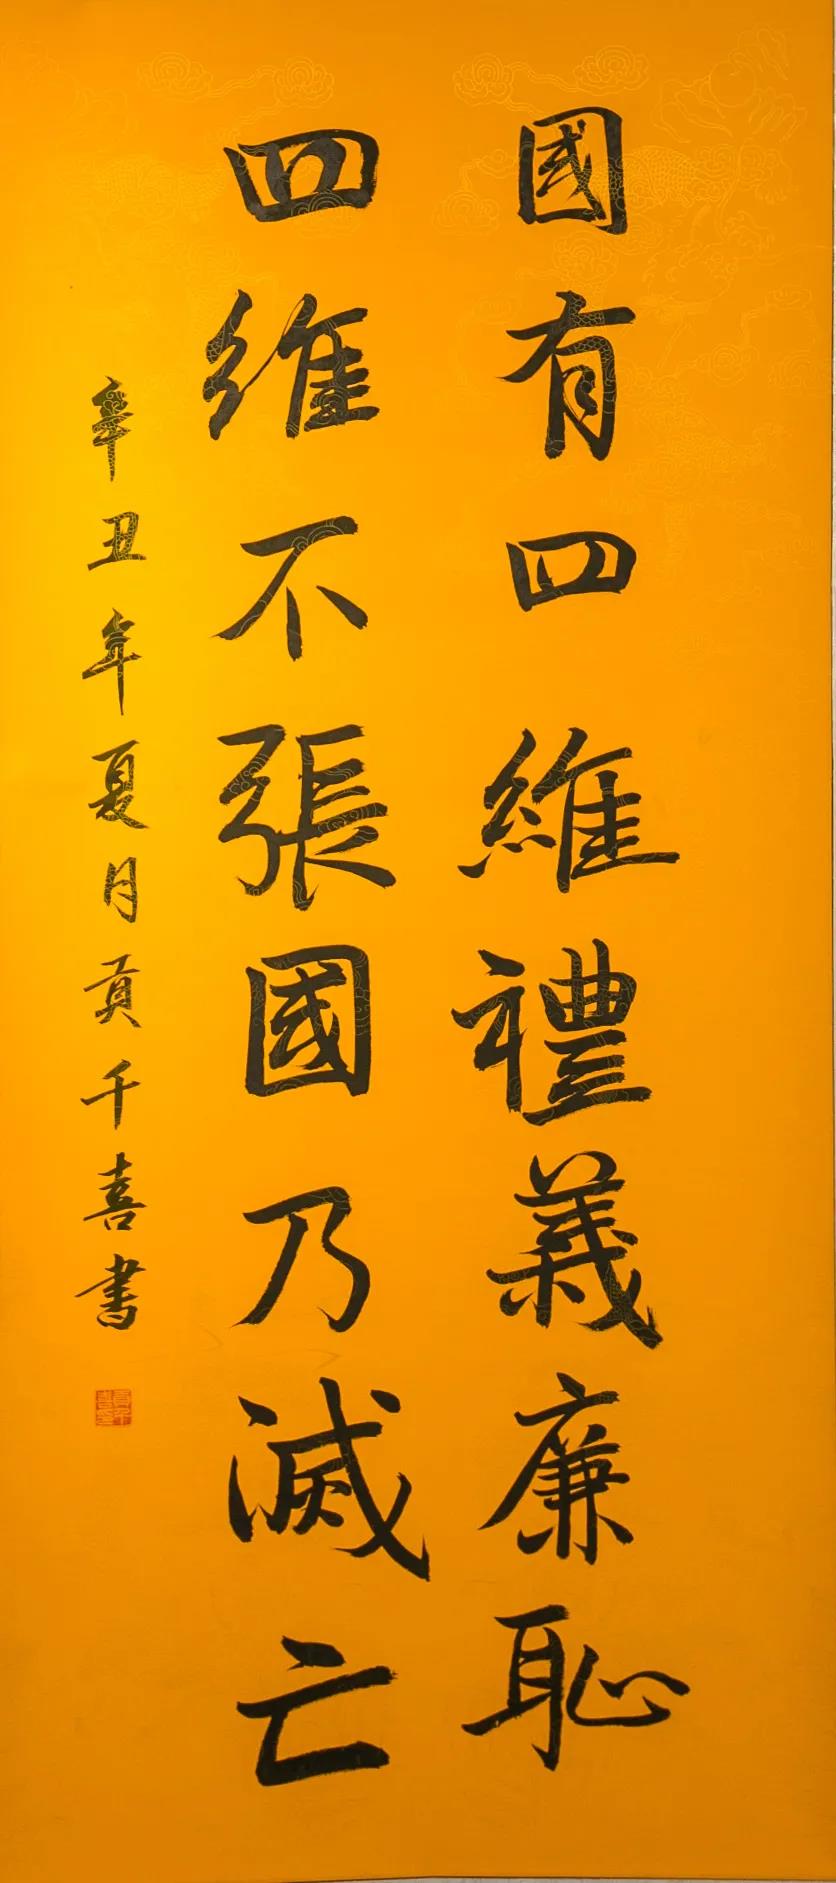 國有四維禮義廉恥
四維不張國乃滅亡
辛丑年夏月贡千喜書